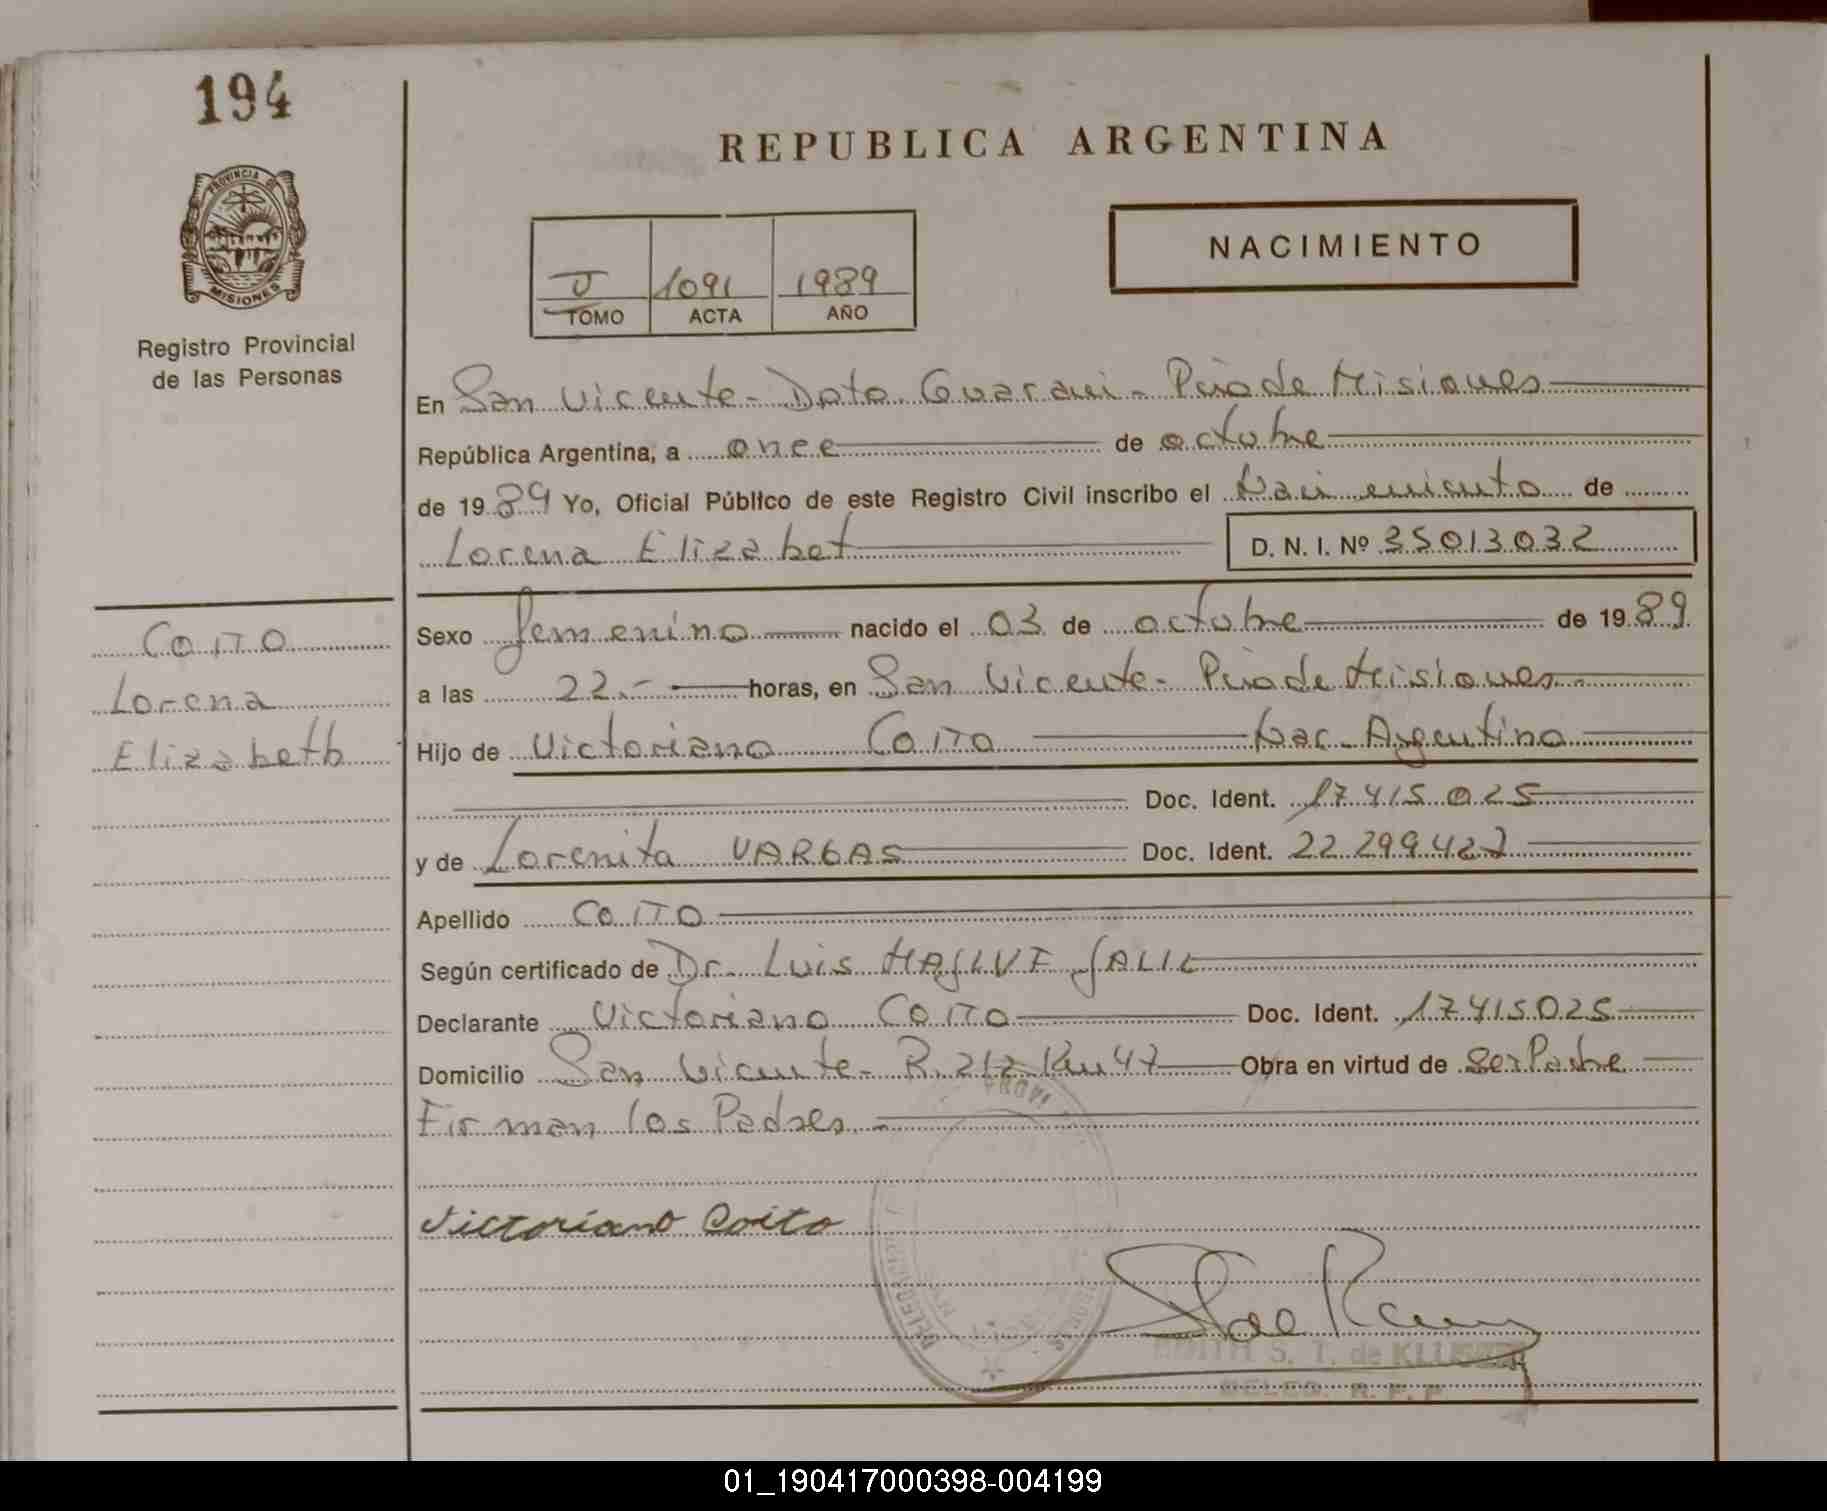 194
REPUBLICA ARGENTINA
PROVINCIA DE
MISIONES
NACIMIENTO
1091 1989
TOMO ACTA AÑO
Registro Provincial
de las Personas
En San Vicente - Dpto Guarani - Pcia de Misiones
República Argentina, a once de octubre
de 1989 Yo, Oficial Público de este Registro Civil inscribo el Nacimiento de
Lorena Elizabet D. N. I. Nº 35013032
COITO
Lorena
Elizabeth
Sexo femenino nacido el 03 de octubre de 1989
a las 22.- horas, en San Vicente - Pcia de Misiones.-
Hijo de Victoriano COITO Nac. Argentino
Doc. Ident. 17415025
y de Lorenita VARGAS Doc. Ident. 22299427
Apellido COITO
Según certificado de Dr. Luis
Declarante Victoriano COITO Doc. Ident. 17415025
Domicilio San Vicente - R. 212 Km 47 Obra en virtud de ser Padre
Firman los Padres.-
Victoriano Coito
EDITH S. T. de
DELEG. R. P. P.
01_190417000398-004199